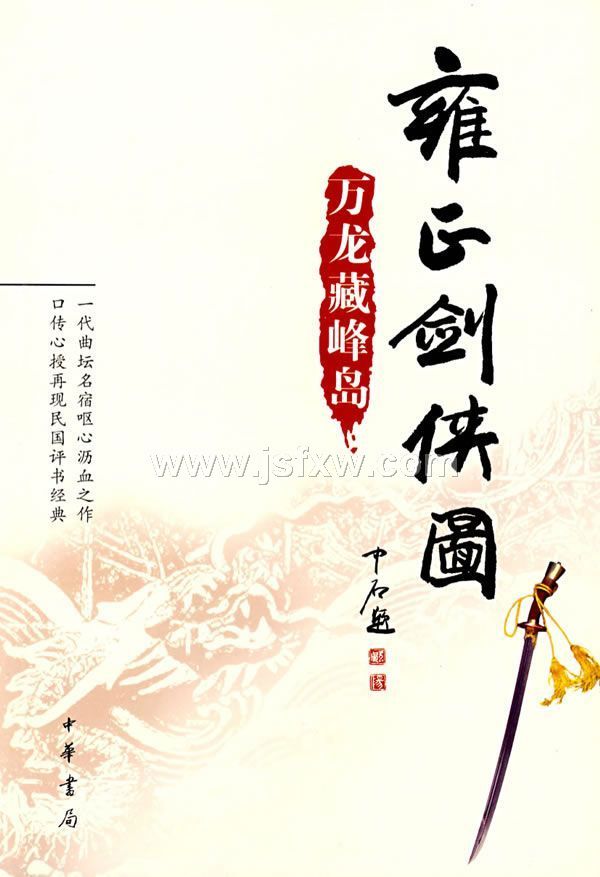 雍正剑侠圖
万龙藏峰岛
中石题
一代曲坛名宿呕心沥血之作
口传心授再现民国评书经典
www.jsfxw.com
中華書局